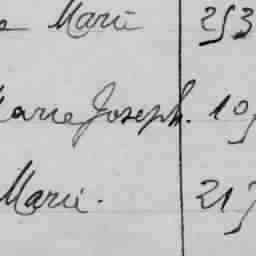 Marie 253
Marie Joseph. 10
Marie. 217